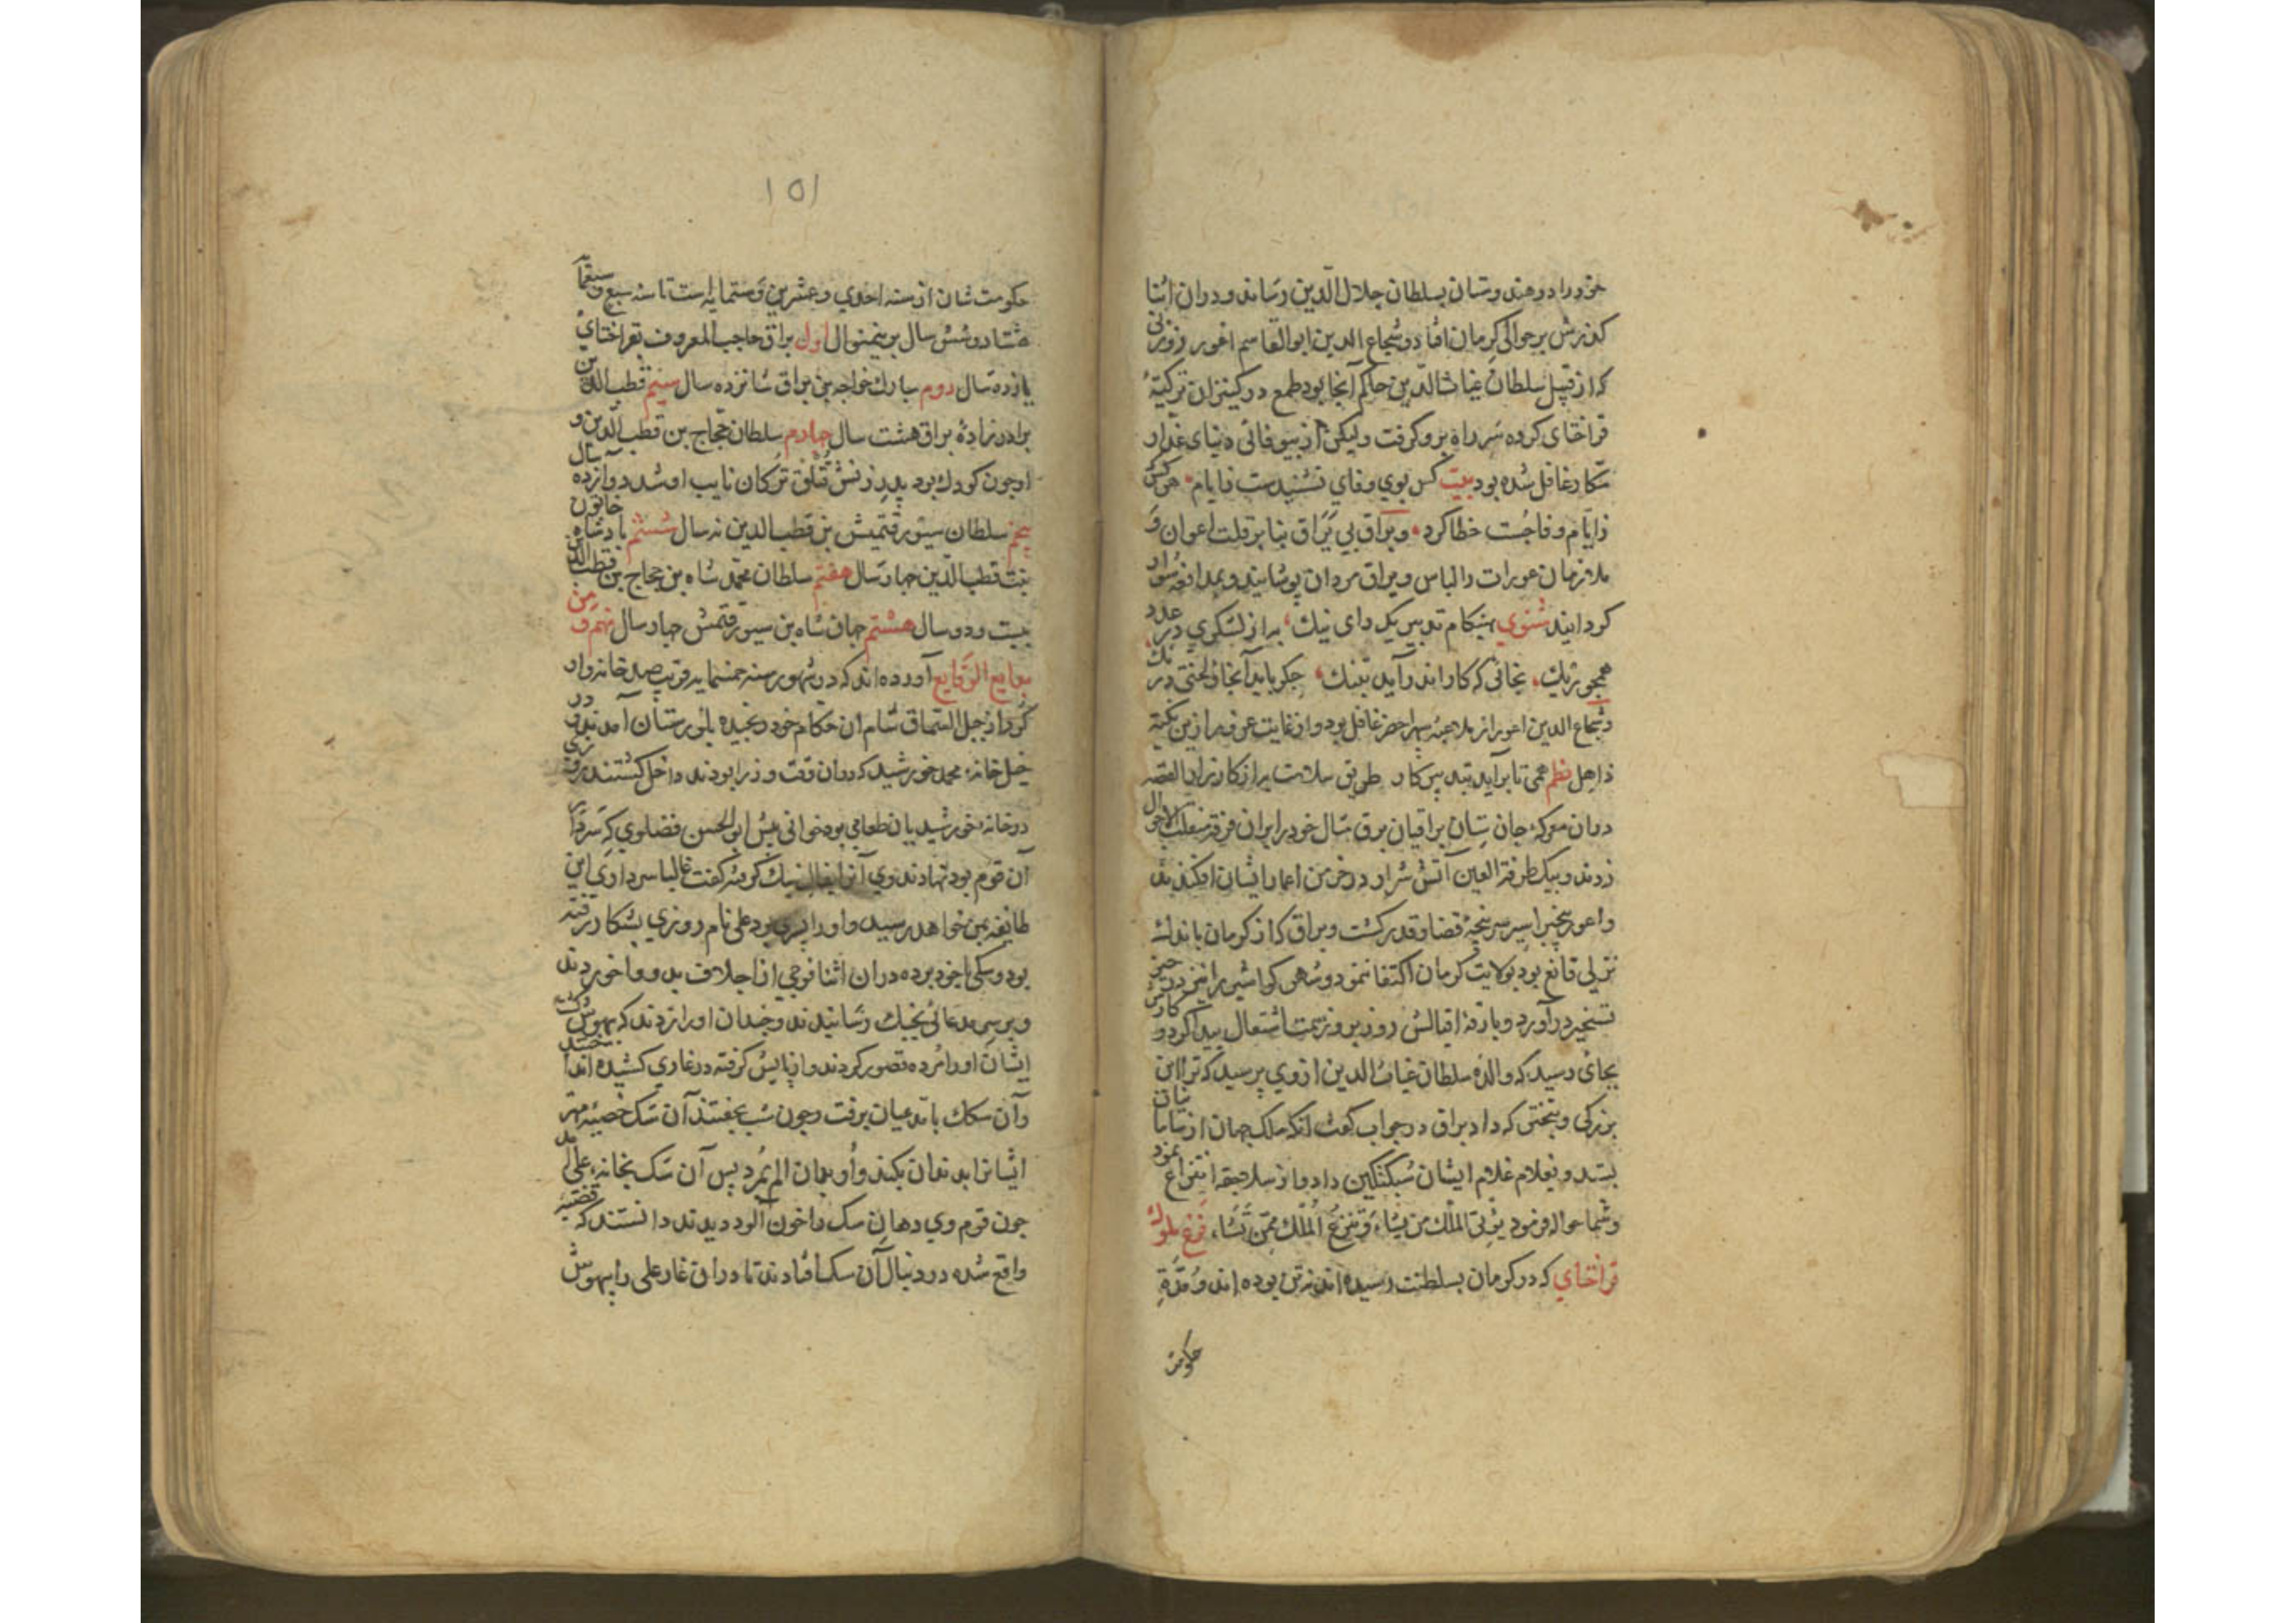 خود را در هندوستان بسلطان جلال الدین رساند و در ان اثنا
کذرش بر حوالی کرمان افتاد و شجاع الدین ابوالقاسم اعور زوزنی
که از قبل سلطان غیاث الدین حاکم آنجا بود طمع در کنیزان ترکیۀ
قراختای کرده سر راه برو کرفت ولیکن از بیوفائی دنیای غدار
مکار غافل شده بود بیت کس بوی وفای نشنیدست ز ایام هر کس
ز ایام وفا جست خطا کرد و براق بی یراق بنا بر قلت اعوان و
ملازمان عورات را لباس و یراق مردان پوشانید و بمدافعه سوار
کردانید مثنوی بهنکام تدبیر یک رای نیک به از لشکری در عدد
همچو ریک بجائی که کار اندر آید بتنک جکر باید آنجا و لختی درنک
و شجاع الدین اعور از ملاعبه سپهر احضر غافل بود و از غایت غرور ازین نکته
ذاهل نظم همی تا برآید بتدبیر کار طریق سلامت به از کارزار القصه
در ان معرکه جان ستان براقیان برق مثال خود را بر ان فرقه منقلب الاحوال
زدند و بیک طرفة العین آتش شرار در خرمن اعمار ایشان افکندند
و اعور بیخبر اسیر سرپنجۀ قضا و قدر کشت و براق که از کرمان باندک
نزلی قانع بود بولایت کرمان اکتفا ننمود و شهر کواشیر را نیز در حیز
تسخیر درآورد و بارقۀ اقبالش روز بروز سمت اشتعال پیدا کرد و کارش
بجائی رسید که والدۀ سلطان غیاث الدین ازوی پرسید که ترا این
بزرکی و تختی که داد براق در جواب کفت انکه ملک جهان از سامانیان
بستد و بغلام غلام ایشان سبکتکین داد و از سلاجقه انتزاع نمود
و بشما حواله فرمود یؤتی الملک من یشاء و تنزع الملک ممن تشاء فرع ملوک
قراختای که در کرمان بسلطنت رسیده اند نه تن بوده اند و مدّةِ
حکومت
۱۵۱
حکومت شان از سنه احدی و عشرین و ستمایه است تا سنه سبع و سبعمایه
هشتاد و شش سال برینمنوال اول براق حاجب المعروف بقراختای
یازده سال دوم مبارک خواجه بن براق شانزده سال سیم قطب الدین
برادرزادۀ براق هشت سال چهارم سلطان حجاج بن قطب الدین و
او چون کودک بود پدر زنش قتلق ترکان نایب او شد دوازده سال
پنجم سلطان سیورقتمیش بن قطب الدین نه سال ششم پادشاه خاتون
بنت قطب الدین چهار سال هفتم سلطان محمد شاه بن حجاج بن قطب الدین
بیست و دو سال هشتم جهان شاه بن سیورقتمش چهار سال نهم و من
بدایع الوقایع آورده اند که در شهور سنه خمسمایه قریب صد خانه وار
کرد از جبل السماق شام از حکام خود رنجیده بلورستان آمدند و در
خیل خانۀ محمد خورشید که در ان وقت وزرا بودند داخل کشتند روزی
در خانۀ خورشیدیان طعامی بود خوانی پیش ابوالحسن فضلوی که سردار
آن قوم بود نهادند وی آنرا بفال نیک کرفته کفت غالبا سرداری این
طایفه بمن خواهد رسید و او را پسری بود علی نام روزی بشکار رفته
بود و سکی با خود برده در ان اثنا فوجی از اجلاف بدو وا خوردند
و بر سر مدعائی بجنک رسانیدند و چندان او را زدند که بیهوش کشت
ایشان او را مرده تصور کردند و از پایش کرفته در غاری کشیده انداختند
و آن سک با مدعیان برفت و چون شب بخفتند آن سک خصیۀ مهتر
ایشانرا بدندان بکند و او بدان الم بمرد پس آن سک بخانۀ علی آمد
چون قوم وی دهان سک را خون آلود دیدند دانستند که قضیه
واقع شده در دنبال آن سک افتادند تا در ان غار علی را بیهوش